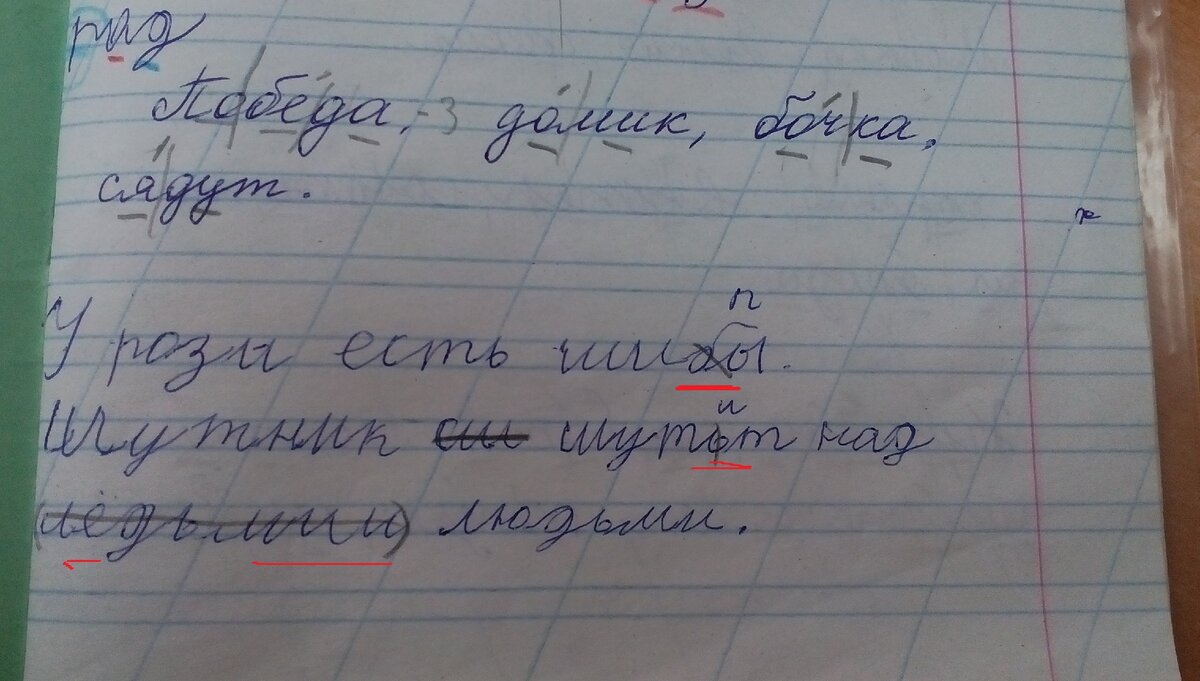 рад
Победа, -3 домик, бочка,
сядут.
п
У розы есть шибы.
и
Шутник сш шутют над
(ледьмии) людьми.